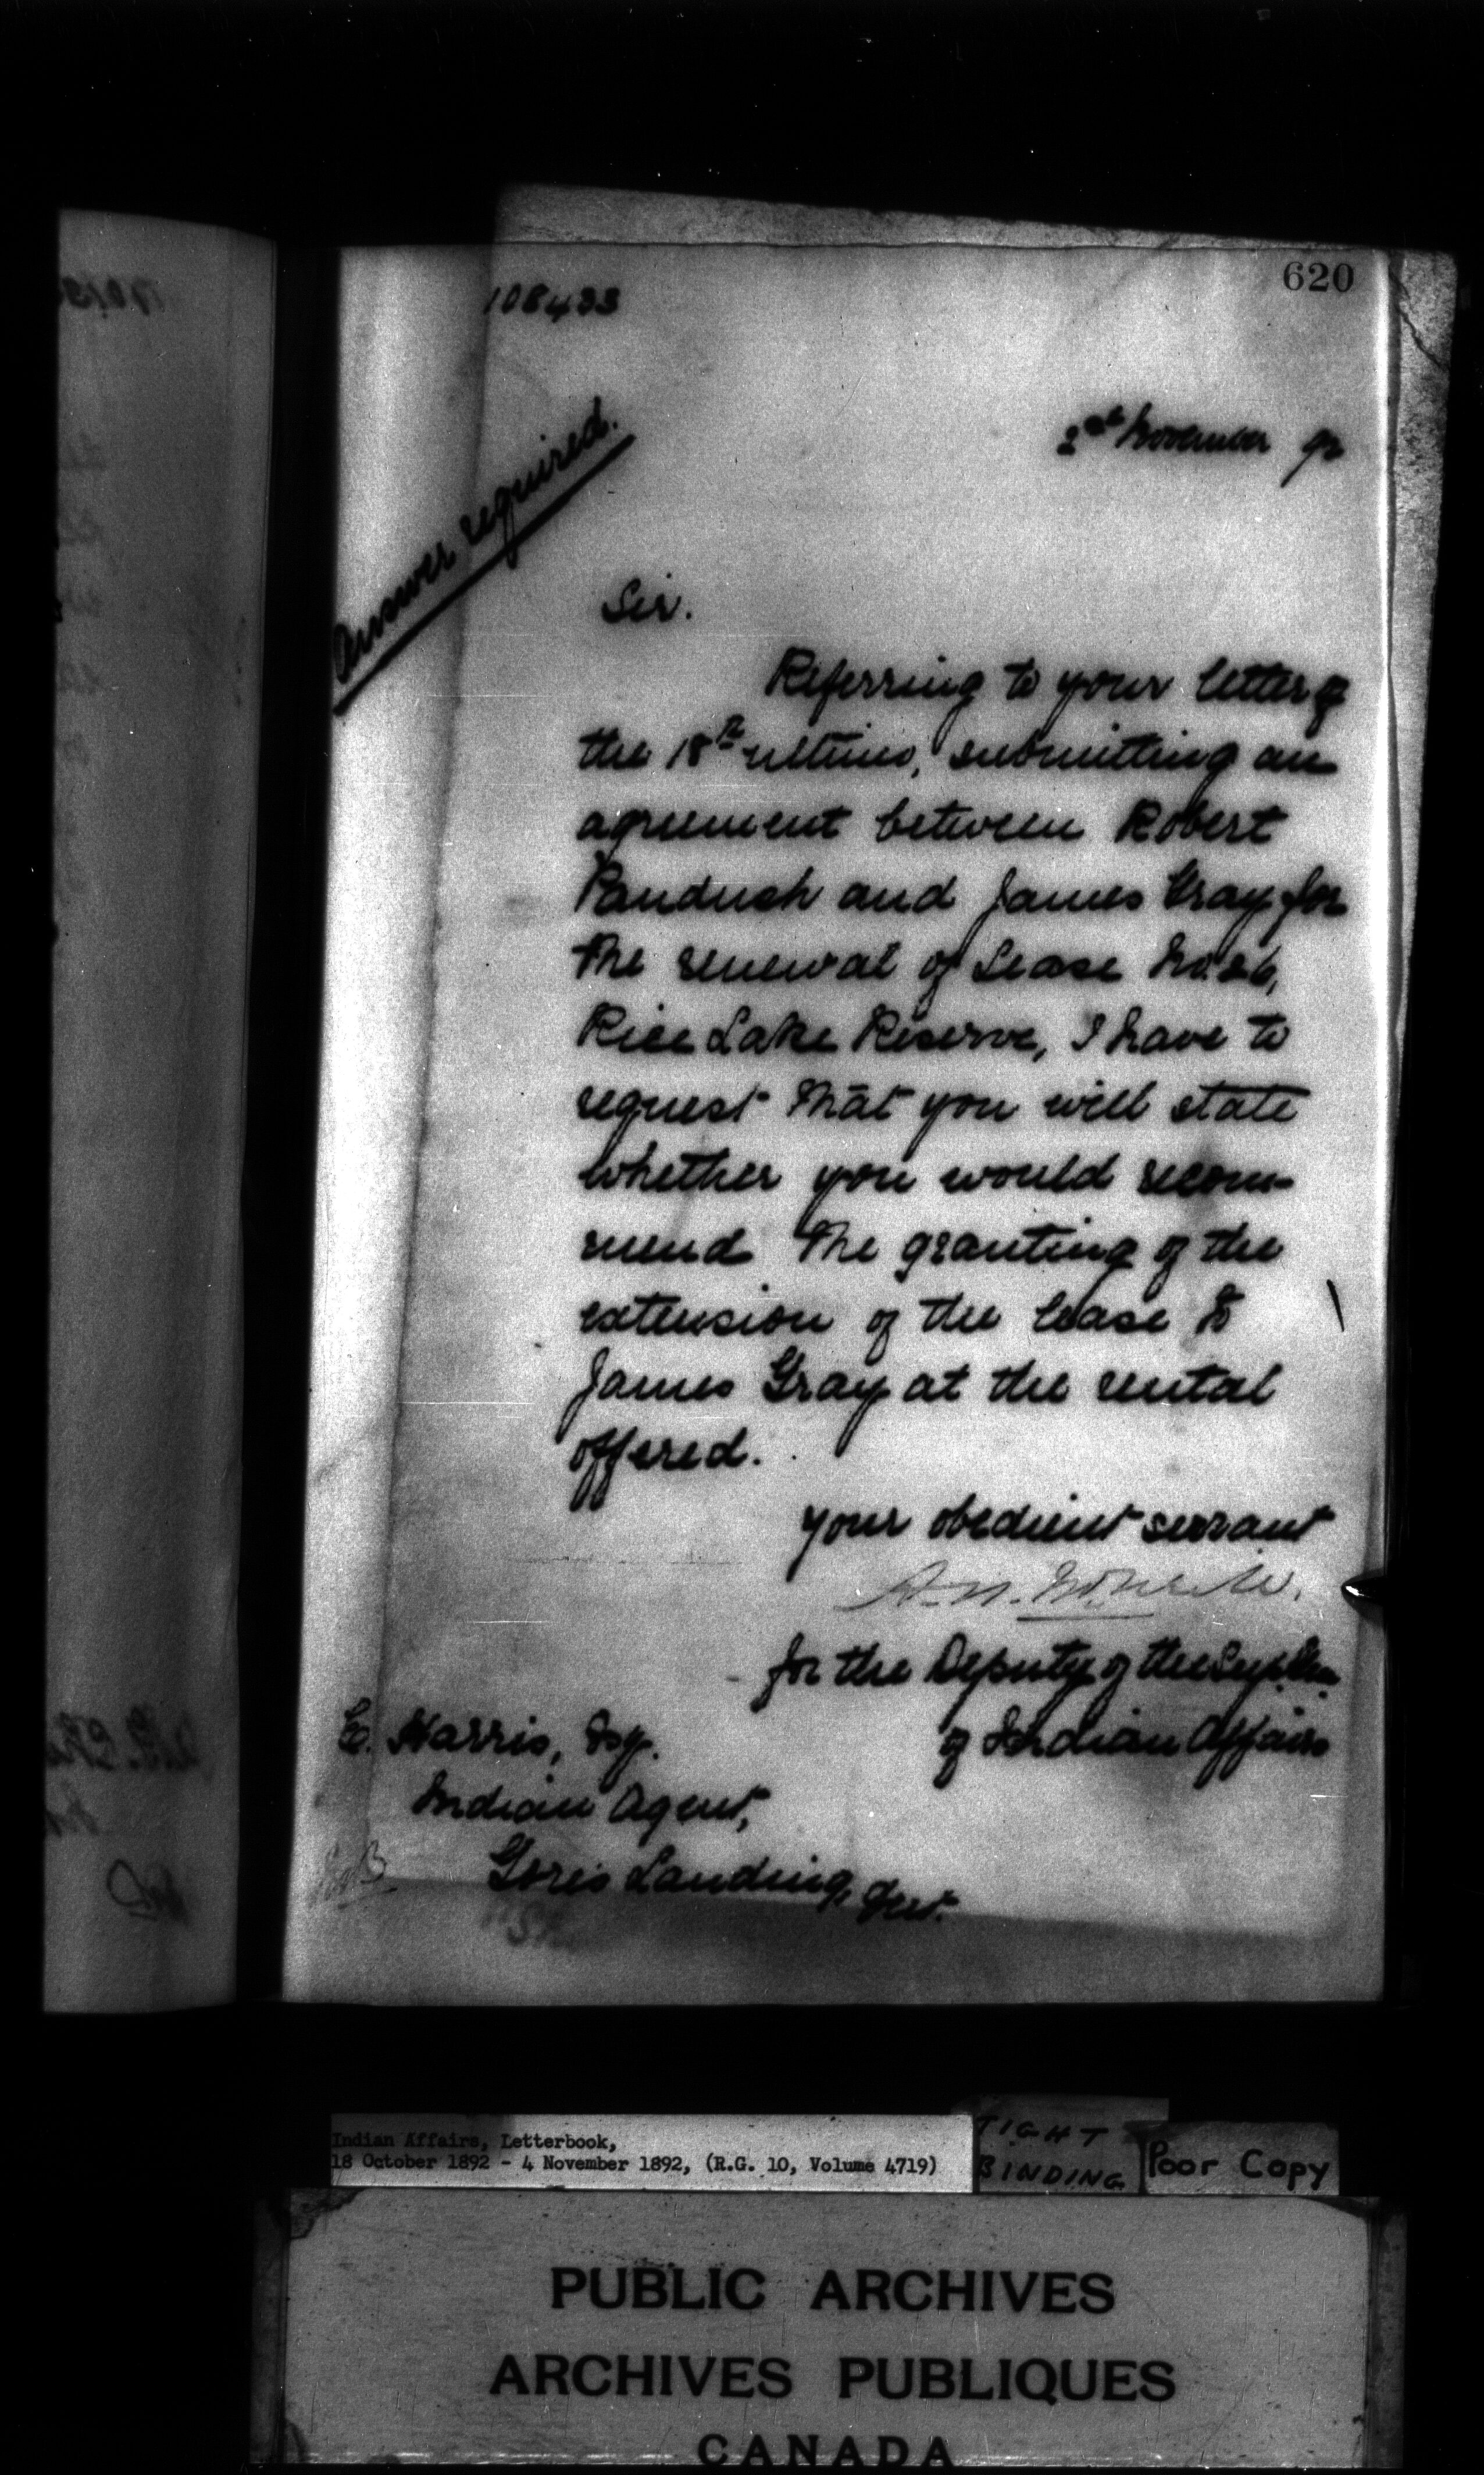 620
108433
2nd November 92
Answer required.
Sir.
Referring to your letter of
the 18th ultimo, submitting an
agreement between Robert
Paudush and James Gray for
the renewal of Lease No. 26,
Rice Lake Reserve, I have to
request that you will state
whether you would recom-
mend the granting of the
extension of the lease to
James Gray at the rental
offered.
Your obedient servant
for the Deputy of the Supt. Gen
of Indian Affairs
E. Harris, Esq.
Indian Agent,
Gores Landing, Ont.
Indian Affairs, Letterbook,
18 October 1892 - 4 November 1892, (R.G. 10, Volume 4719)
TIGHT
BINDING
Poor Copy
PUBLIC ARCHIVES
ARCHIVES PUBLIQUES
CANADA